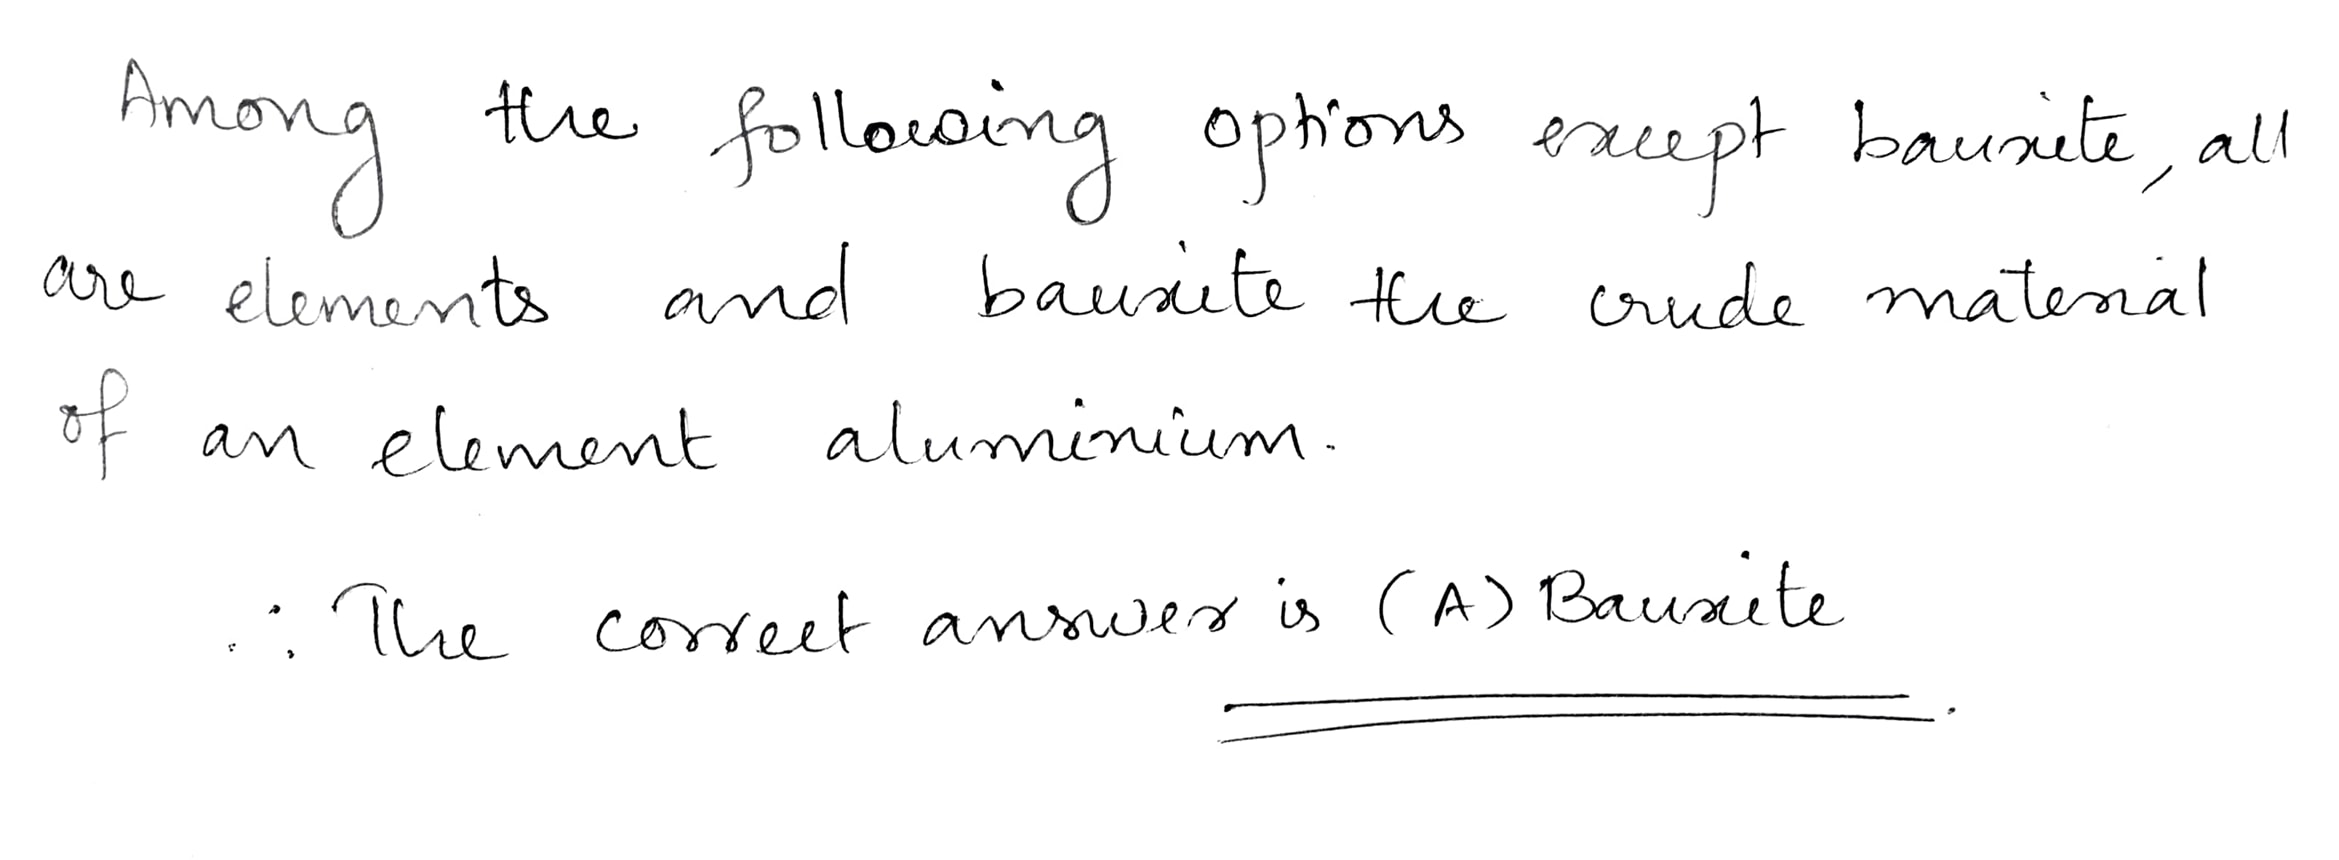 Among the following options except bauxite, all
are elements and bauxite the crude material
of an element aluminium.
∴ The correct answer is (A) Bauxite.